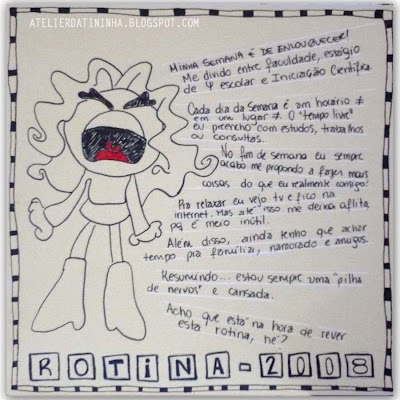 ATELIERDATININHA.BLOGSPOT.COM
MINHA SEMANA É DE ENLOUQUECER!
Me divido entre faculdade, estágio
de Ψ escolar e Iniciação Científica
Cada dia da semana é um horário ≠
em um lugar ≠. O "tempo livre"
eu preencho com estudos, trabalhos
ou consultas.
No fim de semana eu sempre
acabo me propondo a fazer mais
coisas do que eu realmente consigo!
Pra relaxar eu vejo tv e fico na
internet. Mas até isso me deixa aflita
pq é meio inútil.
Além disso, ainda tenho que achar
tempo pra família, namorado e amigos.
Resumindo... estou sempre uma "pilha
de nervos" e cansada.
Acho que está na hora de rever
esta rotina, né?
ROTINA-2008